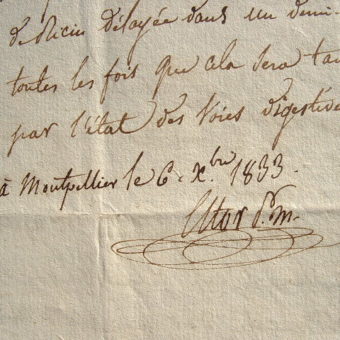 de Ricin délayée dans un demi-
toutes les fois que cela sera
par l'état des Voies digestive
à Montpellier le 6. X.bre 1833.
D.m.